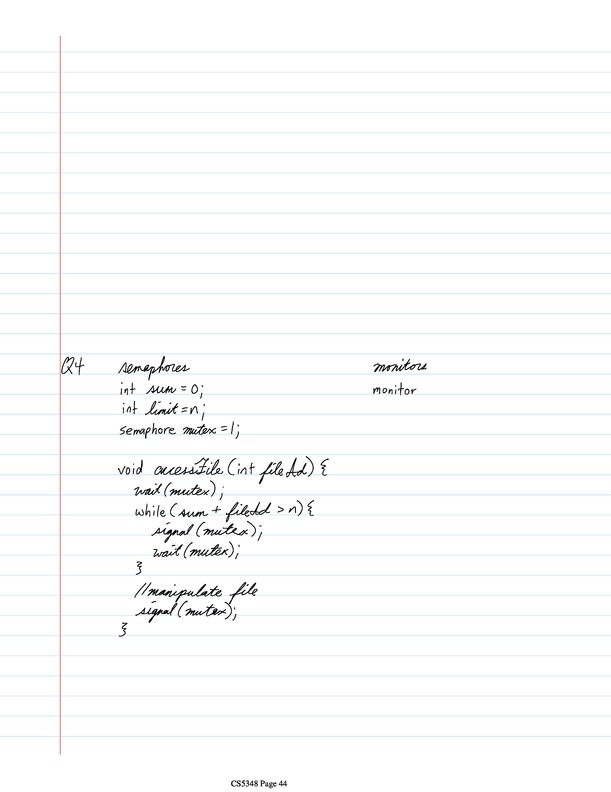 Q4 semaphores monitors
int sum = 0; monitor
int limit = n;
semaphore mutex = 1;
void accessFile (int fileId) {
wait (mutex);
while (sum + fileId > n) {
signal (mutex);
wait (mutex);
}
//manipulate file
signal (mutex);
}
CS5348 Page 44